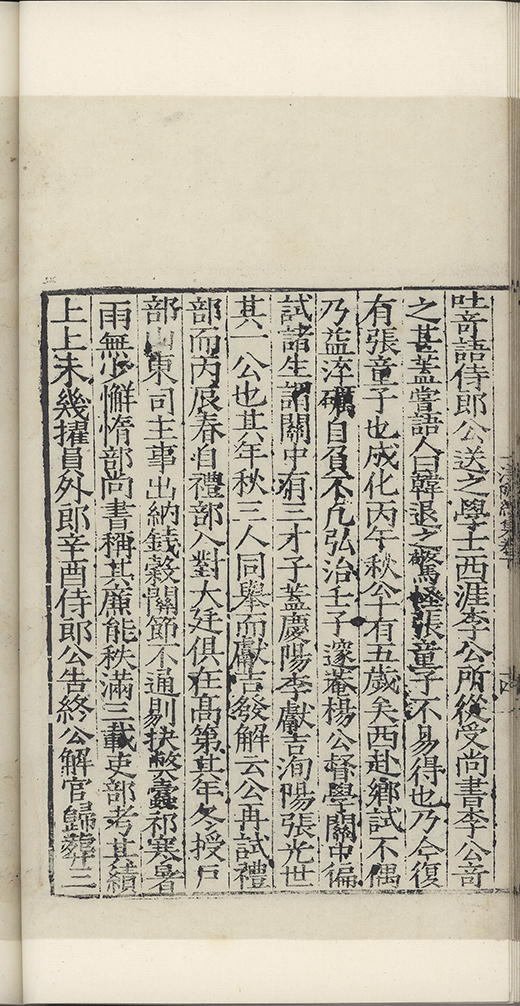 吐奇語侍郎公送之學士西涯李公所後受尚書李公奇
之甚蓋嘗語人曰韓退之驚怪張童子不易得也乃今復
有張童子也成化丙午秋公十有五歲矣西赴鄉試不偶
乃益淬礪自負不凡弘治壬子邃菴楊公督學關中徧
試諸生謂關中有三才子蓋慶陽李獻吉洵陽張光世
其一公也其年秋三人同舉而獻吉發解云公再試禮
部而丙辰春自禮部入對大廷俱在高第其年冬授戶
部山東司主事出納錢穀關節不通剔抉弊蠹祁寒暑
雨無少懈惰部尚書稱其廉能秩滿三載吏部考其績
上上未幾擢員外郎辛酉侍郎公告終公解官歸葬三